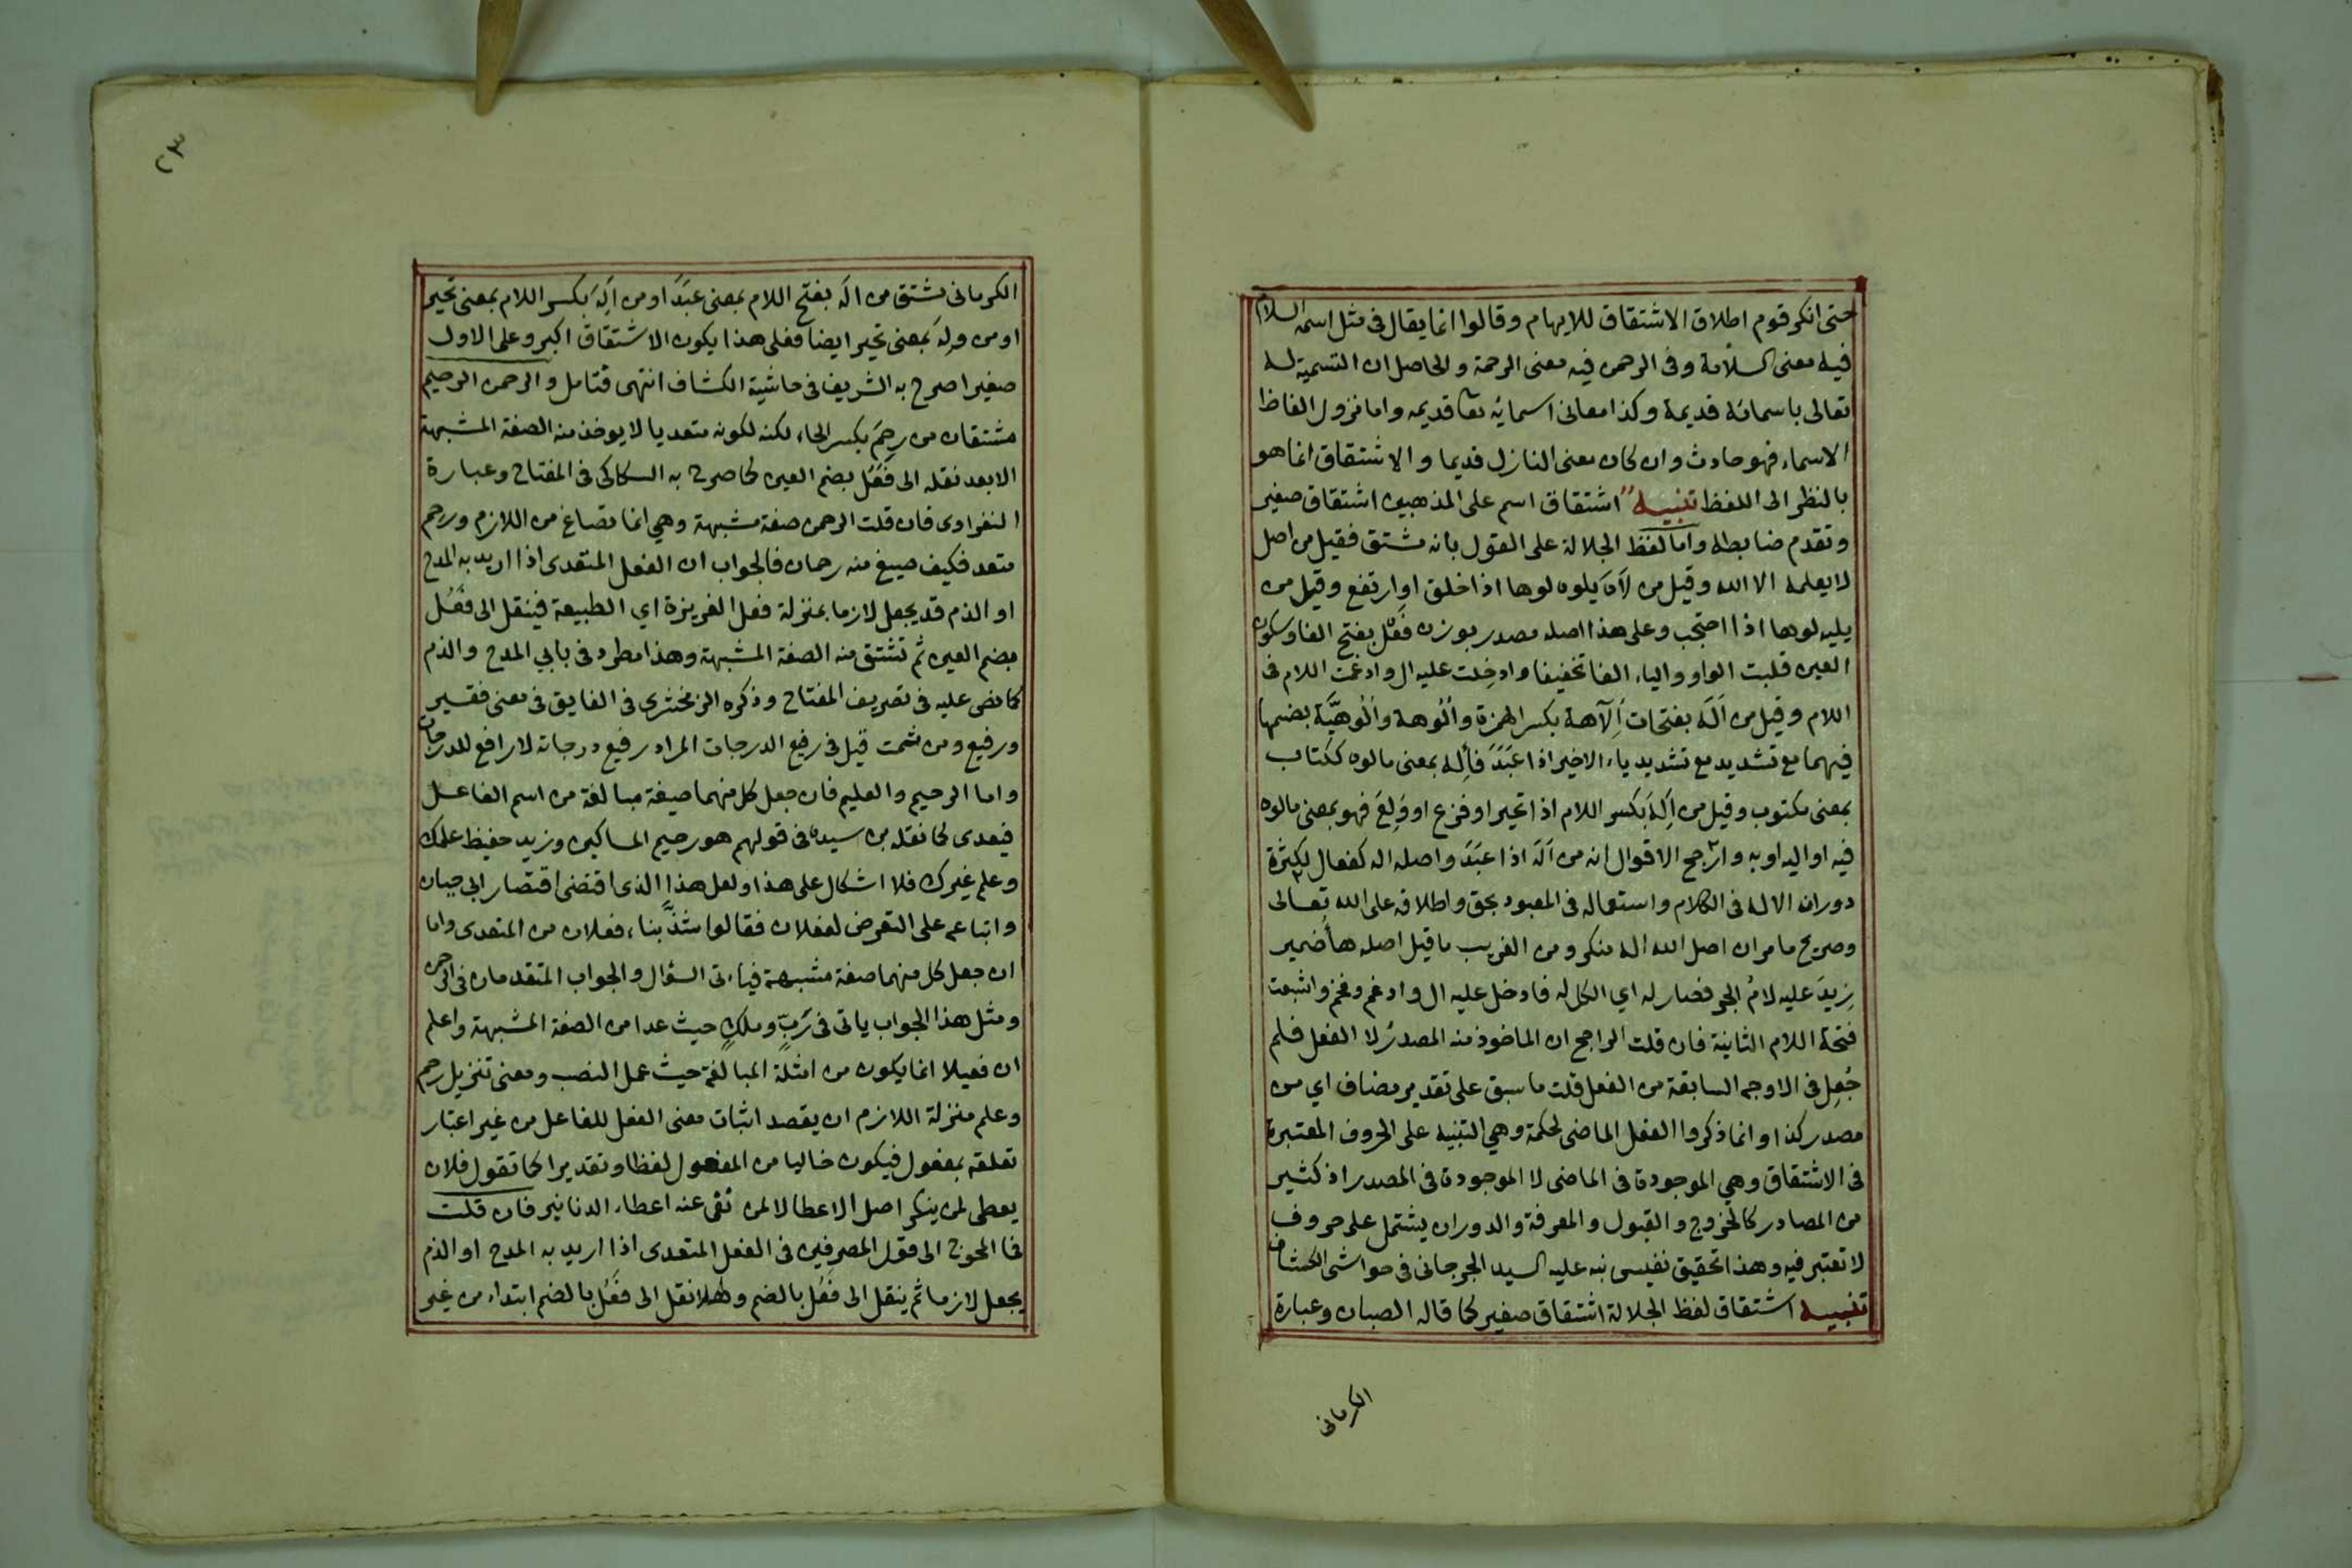 حتى انكر قوم اطلاق الاشتقاق للايهام وقالوا انما يقال فى مثل اسمه السلام
فيه معنى السلامة وفى الرحمن فيه معنى الرحمة والحاصل ان التسمية له
تعالى باسمائه قديمة وكذا معانى اسمائه تعا قديمه واما نزول الفاظ
الاسماء فهو حادث وان كان معنى النازل قديما والاشتقاق انما هو
بالنظر الى اللفظ تنبيه اشتقاق اسم على المذهبين اشتقاق صغير
وتقدم ضابطه واما لفظ الجلالة على القول بانه مشتق فقيل من اصل
لا يعلمه الا الله وقيل من لَاهَ يلوه لوها اذا خلق او ارتفع وقيل من
يليه لوها اذا احتجب وعلى هذا اصله مصدر بوزن فَعْل بفتح الفا وسكون
العين قلبت الواو والياء الفا تخفيفا وادخلت عليه ال وادغمت اللام فى
اللام وقيل من اَلَهَ بفتحات اِلَآهة بكسر الهمزة واُلُوهة واُلُوهيَّة بضمها
فيهما مع تشديد مع تشديد ياء الاخير اذا عَبَدَ فأله بمعنى مالوه ككتاب
بمعنى مكتوب وقيل من اَلِهَ بكسر اللام اذا تحير او فزع او وَلِعَ فهو بمعنى مالوه
فيه او اليه او به وارجح الاقوال انه من اَلَهَ اذا عَبَدَ واصله اله كفعال لكثرة
دوران الاله فى الكلام واستعماله فى المعبود بحق واطلاقه على الله تعالى
وصريح ما مر ان اصل الله اله منكر ومن الغريب ما قيل اصله ها ضمير
زِيدَ عليه لامُ الجر فصار له اي الكل له فادخل عليه ال وادغم وفخم واشبعت
فتحة اللام الثانية فان قلت الراجح ان الماخوذ منه المصدر لا الفعل فلم
جُعِل فى الاوجه السابقة من الفعل قلت ما سبق على تقدير مضاف اي من
مصدر كذا وانما ذكروا الفعل الماضى لحكمة وهي التنبيه على الحروف المعتبرة
فى الاشتقاق وهي الموجودة فى الماضى لا الموجودة فى المصدر اذ كثير
من المصادر كالخروج والقبول والمعرفة والدوران يشتمل على حروف
لا تعتبر فيه وهذا تحقيق نفيس نبه عليه السيد الجرجانى فى حواشى الكشاف
تنبيه اشتقاق لفظ الجلالة اشتقاق صغير كما قاله الصبان وعبارة
الكرمانى
٢٣
الكرمانى مشتق من اله بفتح اللام بمعنى عَبَدَ او من اَلِهَ بكسر اللام بمعنى تحير
او من وِلهَ بمعنى تحير ايضا فعلى هذا يكون الاشتقاق اكبر وعلى الاول
صغيرا صرح به الشريف فى حاشية الكشاف انتهى فتامل والرحمن الرحيم
مشتقان من رحِمَ بكسر الحاء لكنه لكونه متعديا لا يوخذ منه الصفة المشبهة
الا بعد نقله الى فَعُلَ بضم العين كما صرح به السكاكى فى المفتاح وعبارة
النفراوى فان قلت الرحمن صفة مشبهة وهي انما تصاغ من اللازم ورحم
متعد فكيف صيغ منه رحمان فالجواب ان الفعل المتعدى اذا اريد به المدح
او الذم قد يجعل لازما بمنزلة فعل الغريزة اي الطبيعة فينقل الى فَعُل
بضم العين ثم تشتق منه الصفة المشبهة وهذا مطرد فى بابي المدح والذم
كما نص عليه فى تصريف المفتاح وذكره الزمخشرى فى الفايق فى معنى فقير
ورفيع ومن ثمت قيل فى رفيع الدرجات المراد رفيع درجاته لا رافع للدرجات
واما الرحيم والعليم فان جعل كل منهما صيغة مبالغة من اسم الفاعل
فيعدى كما نقله بن سيده فى قولهم هو رحيم المساكين وزيد حفيظ علمك
وعلم غيرك فلا اشكال على هذا ولعل هذا الذى اقتضى اقتصار ابى حيان
واتباعه على التعرض لفعلان فقالوا شذّ بناء فعلان من المتعدى واما
ان جعل كل منهما صفة مشبهة فياءتى السؤال والجواب المتقدمان فى الرحمن
ومثل هذا الجواب ياتى فى رَبٍّ وملكٍ حيث عدا من الصفة المشبهة واعلم
ان فعيلا انما يكون من امثلة المبالغة حيث عمل النصب ومعنى تنزيل رحم
وعلم منزلة اللازم ان يقصد اثبات معنى الفعل للفاعل من غير اعتبار
تعلقه بمفعول فيكون خاليا من المفعول لفظا وتقديرا كما تقول فلان
يعطى لمن ينكر اصل الاعطا لا لمن نفى عنه اعطاء الدنانير فان قلت
فما المحوج الى قول المصرفين فى الفعل المتعدى اذا اريد به المدح او الذم
يجعل لازما ثم ينقل الى فعُل بالضم وهلا نقل الى فَعُل بالضم ابتداء من غير